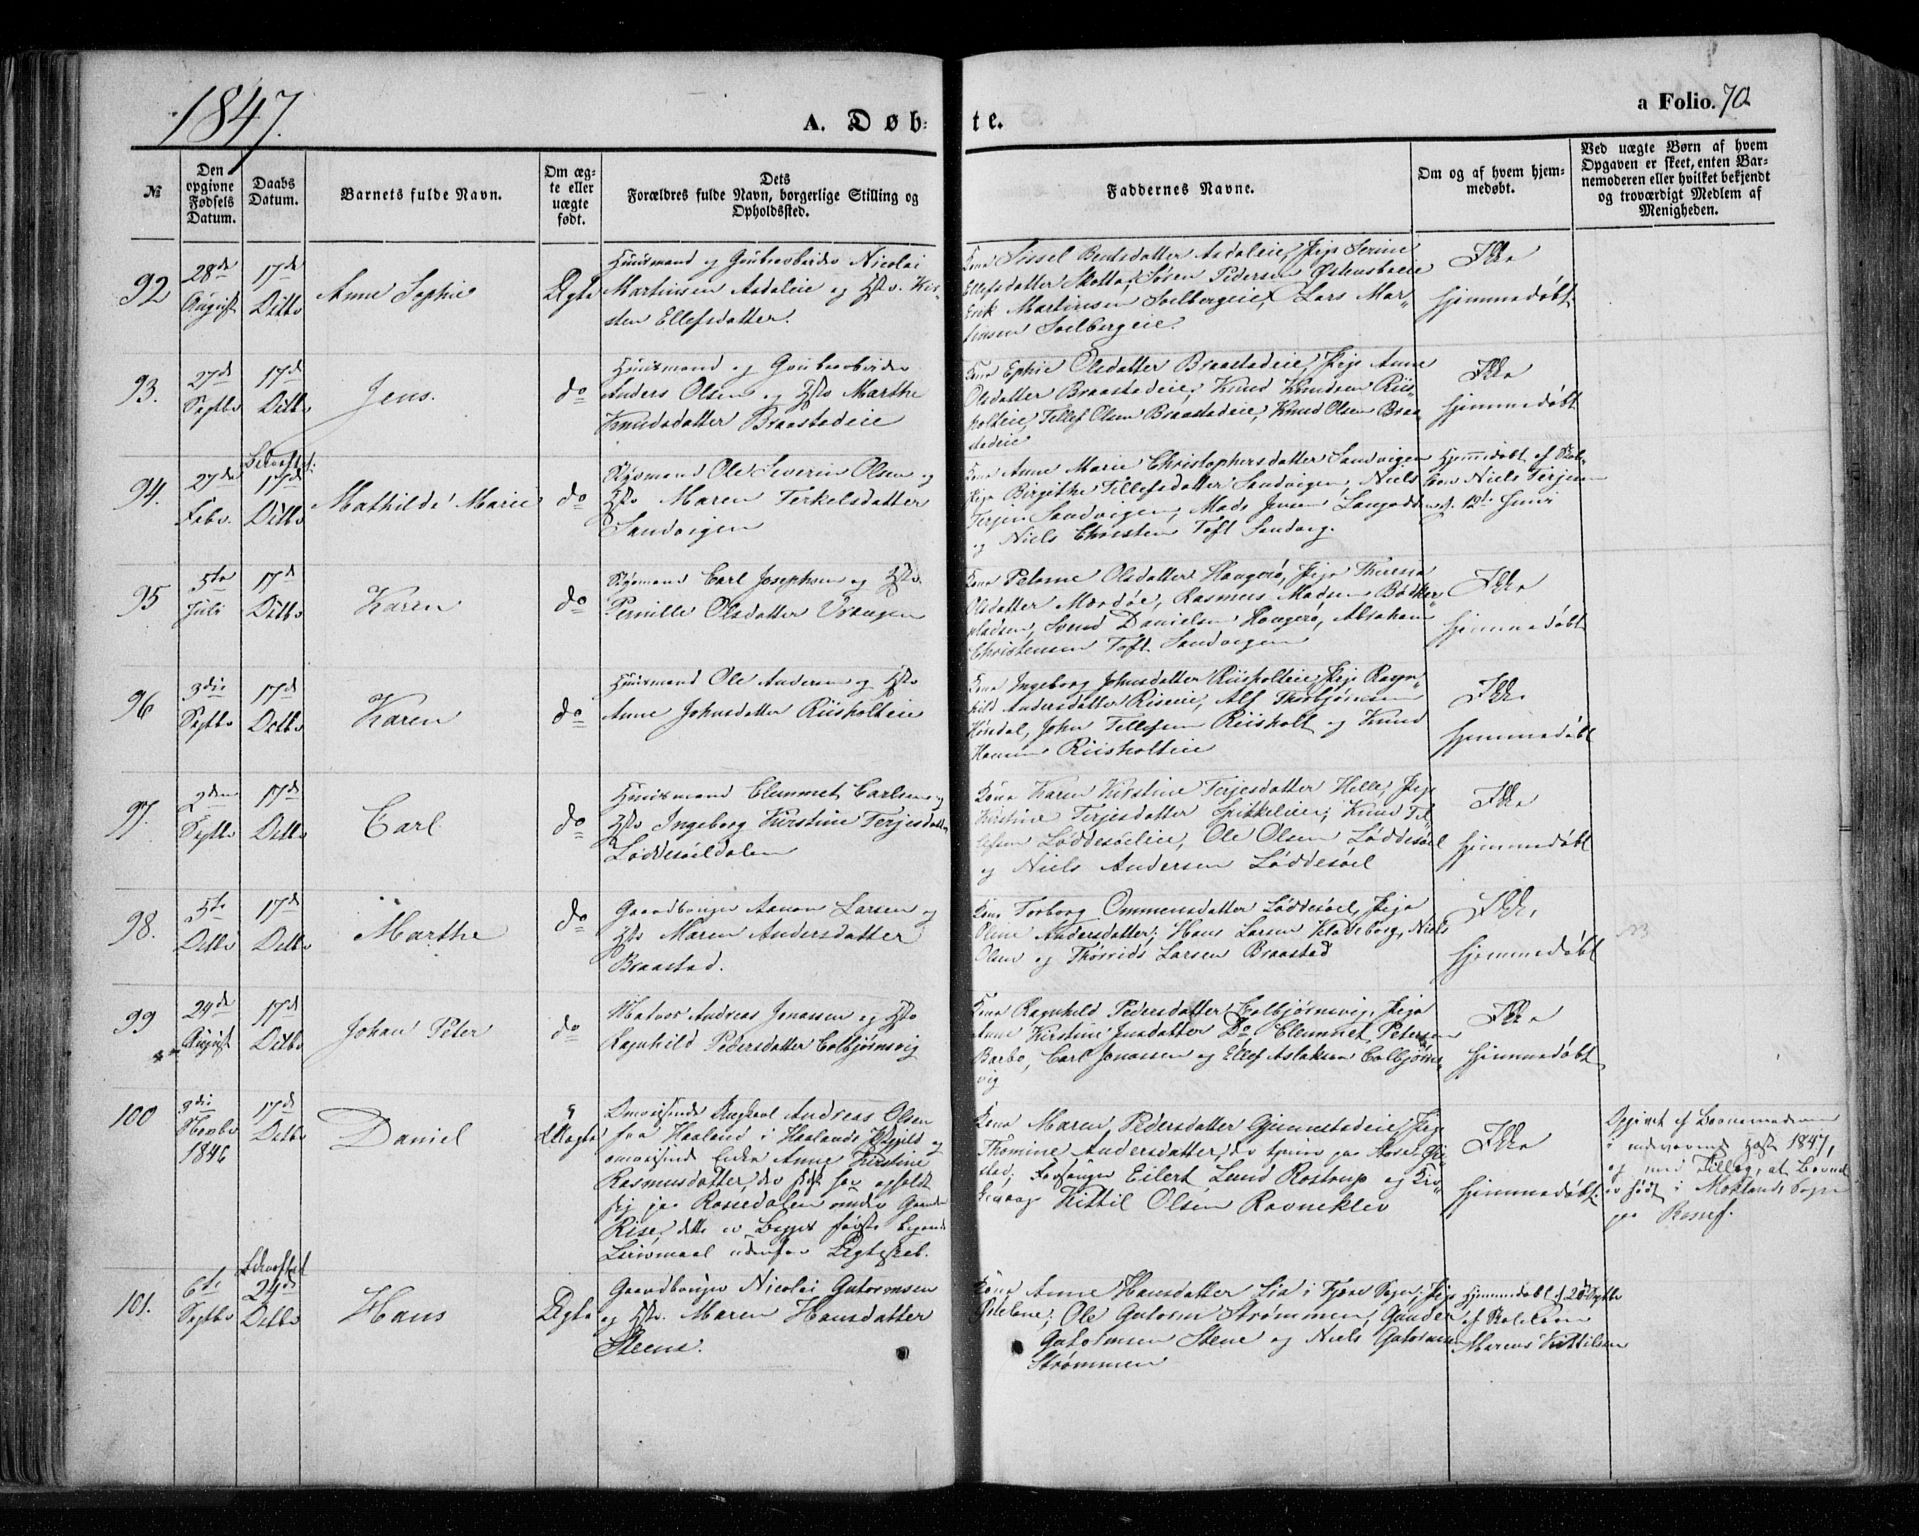 1847.
A. Døbte.
a Folio. 70
№
Den opgivne Fødsels Datum.
Daabs Datum.
Barnets fulde Navn.
Om ægte eller uægte født.
Dets Forældres fulde Navn, borgerlige Stilling og Opholdssted.
Faddernes Navne.
Om og af hvem hjemmedøbt.
Ved uægte Børn af hvem Opgaven er skeet, enten Barnemoderen eller hvilket bekjendt og troværdigt Medlem af Menigheden.
92
28de August
17de Ditto
Anne Sophie
Ægte
Huusmand og Grubearbeider Nicolai
Martinsen Asdaleie og Hstr. Kir-
sten Ellefsdatter.
Kone Sissel Bentsdatter Asdaleie, Pige Serine
Ellefsdatter Skotta, Søren Pedersen Østensbueie
Erik Martinsen Solbergeie, Lars Mar-
tinsen Solbergeie.
Ikke
hjemmedøbt.
93.
27de Septbr
17de Ditto
Jens.
do
Huusmand og Grubearbeider
Anders Olsen og Hstr Marthe
Knudsdatter Braastadeie
Olsdatter Braastadeie, Pige Anne
Olsdatter Braastadeie, Knud Knudsen Riis-
holteie, Tellef Olsen Braastadeie, Knud Olsen Braa-
stadeie
Ikke
hjemmedøbt
94.
27de Febr.
17de Ditto
Mathilde Marie
do
Ole Severin Olsen og
Hstr Maren Terkelsdatter
Sandvigen
Kone Anne Marie Christophersdatter Sandvigen
Pige Birgithe Tellefsdatter Sandvigen, Niels
Terjesen Sandvigen, Mads Jensen
og Niels Christen Toft Sandvig.
Hjemmedøbt af
Niels Terjesen
12te Juni
95
5te Juli
17de Ditto
Karen
do
Carl Josephsen og Hstr.
Pernille Olsdatter Vrangen
Kone Olsdatter Havgerø, Pige
Olsdatter Merdøe, Rasmus Madsen Bødker-
pladsen, Svend Danielsen Havgerø, Abraham
Christensen Toft Sandvigen
Ikke
hjemmedøbt
96
3die Septbr
17de Ditto
Karen
do
Huusmand Ole Andersen og Hstr
Anne Johnsdatter Riisholteie
Kone Ingeborg Johnsdatter Riisholteie, Pige Ragn-
hild Andersdatter Riseeie, Alf Thorbjørnsen
John Tellefsen Riisholt og Knud
Hansen Riisholteie
Ikke
hjemmedøbt
97.
2den Septbr
17de Ditto
Carl
do
Huusmand Clemmet Carlsen og
Hstr Ingeborg Kirstine Terjesdatter
Løddesøeldalen
Kone Karen Kirstine Terjesdatter Helle, Pige
Kirstine Terjesdatter Spikkeleie, Knud Tel-
lefsen Løddesøeleie, Ole Olsen Løddesøel
og Niels Andersen Løddesøel
Ikke
hjemmedøbt
98.
5te Ditto
17de Ditto
Marthe
do
Gaardbruger Aanon Larsen og
Hstr Maren Andersdatter
Braastad.
Kone Torborg Ommensdatter Løddesøel, Pige
Oline Andersdatter, Hans Larsen Kladeborg, Niels
Olsen og Larsen Braastad
Ikke
hjemmedøbt
99
24de August
17de Ditto
Johan Peter
do
Matros Andreas Jonassen og Hstr
Ragnhild Pedersdatter Colbjørnsvig
Kone Ragnhild Pedersdatter Colbjørnsvig, Pige
Anne Kirstine Jensdatter Do, Clemmet Petersen
Barbo, Carl Jonassen og Ellef Aslaksen Colbjørns-
vig
Ikke
hjemmedøbt
100
3die Novbr 1846
17de Ditto
Daniel
Uægte
Omreisende Andreas Olsen
fra Haaland i og
omreisende Enke Anne Kirstine
Rasmusdatter, der har opholdt
sig paa Rossedalen under Gaarden
Rise, dette er Begges første
Leiermaal udenfor Ægteskab.
Kone Maren Pedersdatter Gjennestadeie, Pige
Thomine Andersdatter, der tjener paa
Eilert Lund Rostrup og
Kittil Olsen Ravneklev
Ikke
hjemmedøbt.
Opgivet af Barnemoderen
i nærværende Høst 1847,
og med Tillæg, at Barnet
er født i Moklands Sogn
101.
6te Septbr
24de Ditto
Hans
Ægte
Gaardbruger Nicolai Gutormsen
og Hstr. Maren Hansdatter
Steene.
Kone Anne Hansdatter Lia i Fjære Sogn, Pige
Ole Gutorm Strømmen, Gunder
Gutormsen Steene og Niels Gutormsen
Strømmen
Hjemmedøbt
af
Marcus Kittilsen